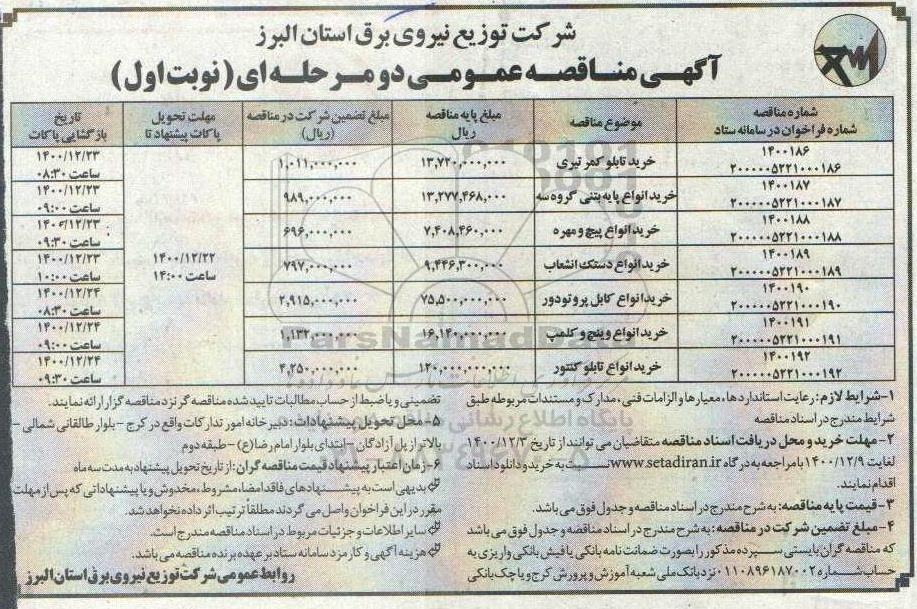 شرکت توزیع نیروی برق استان البرز
آگهی مناقصه عمومی دو مرحله ای (نوبت اول)
شماره مناقصه
شماره فراخوان در سامانه ستاد
موضوع مناقصه
مبلغ پایه مناقصه
ریال
مبلغ تضمین شرکت در مناقصه
(ریال)
مهلت تحویل
پاکات پیشنهاد تا
تاریخ
بازگشایی پاکات
۱۴۰۰۱۸۶
۲۰۰۰۰۰۵۲۲۱۰۰۰۱۸۶
خرید تابلو کمر تیری
۱۳,۷۲۰,۰۰۰,۰۰۰
۱,۰۱۱,۰۰۰,۰۰۰
۱۴۰۰/۱۲/۲۳
ساعت ۰۸:۳۰
۱۴۰۰۱۸۷
۲۰۰۰۰۰۵۲۲۱۰۰۰۱۸۷
خرید انواع پایه بتنی گروه سه
۱۳,۲۷۷,۴۶۸,۰۰۰
۹۸۹,۰۰۰,۰۰۰
۱۴۰۰/۱۲/۲۳
ساعت ۰۹:۰۰
۱۴۰۰۱۸۸
۲۰۰۰۰۰۵۲۲۱۰۰۰۱۸۸
خرید انواع پیچ و مهره
۷,۴۰۸,۴۶۰,۰۰۰
۶۹۶,۰۰۰,۰۰۰
۱۴۰۰/۱۲/۲۳
ساعت ۰۹:۳۰
۱۴۰۰۱۸۹
۲۰۰۰۰۰۵۲۲۱۰۰۰۱۸۹
خرید انواع دستک انشعاب
۹,۴۴۶,۳۰۰,۰۰۰
۷۹۷,۰۰۰,۰۰۰
۱۴۰۰/۱۲/۲۲
ساعت ۱۴:۰۰
۱۴۰۰/۱۲/۲۳
ساعت ۱۰:۰۰
۱۴۰۰۱۹۰
۲۰۰۰۰۰۵۲۲۱۰۰۰۱۹۰
خرید انواع کابل پروتودور
۷۵,۵۰۰,۰۰۰,۰۰۰
۲,۹۱۵,۰۰۰,۰۰۰
۱۴۰۰/۱۲/۲۴
ساعت ۰۸:۳۰
۱۴۰۰۱۹۱
۲۰۰۰۰۰۵۲۲۱۰۰۰۱۹۱
خرید انواع وینچ و کلمپ
۱۶,۱۴۰,۰۰۰,۰۰۰
۱,۱۳۲,۰۰۰,۰۰۰
۱۴۰۰/۱۲/۲۴
ساعت ۰۹:۰۰
۱۴۰۰۱۹۲
۲۰۰۰۰۰۵۲۲۱۰۰۰۱۹۲
خرید انواع تابلو کنتور
۱۲۰,۰۰۰,۰۰۰,۰۰۰
۴,۲۵۰,۰۰۰,۰۰۰
۱۴۰۰/۱۲/۲۴
ساعت ۰۹:۳۰
۱- شرایط لازم: رعایت استانداردها، معیارها و الزامات فنی، مدارک و مستندات مربوطه طبق
شرایط مندرج در اسناد مناقصه
۲- مهلت خرید و محل دریافت اسناد مناقصه متقاضیان می توانند از تاریخ ۱۴۰۰/۱۲/۳
لغایت ۱۴۰۰/۱۲/۹ با مراجعه به درگاه www.setadiran.ir نسبت به خرید و دانلود اسناد
اقدام نمایند.
۳- قیمت پایه مناقصه: به شرح مندرج در اسناد مناقصه و جدول فوق می باشد.
۴- مبلغ تضمین شرکت در مناقصه: به شرح مندرج در اسناد مناقصه و جدول فوق می باشد
که مناقصه گران بایستی سپرده مذکور را بصورت ضمانت نامه بانکی یا فیش بانکی واریزی به
حساب شماره ۰۱۱۰۸۹۶۱۸۷۰۰۲ نزد بانک ملی شعبه آموزش و پرورش کرج و یا چک بانکی
تضمینی و یا ضبط از حساب مطالبات تایید شده مناقصه گر نزد مناقصه گزار ارائه نمایند.
۵- محل تحویل پیشنهادات: دبیرخانه امور تدارکات واقع در کرج - بلوار طالقانی شمالی -
بالاتر از پل آزادگان - ابتدای بلوار امام رضا(ع) - طبقه دوم
۶- زمان اعتبار پیشنهاد قیمت مناقصه گران: از تاریخ تحویل پیشنهاد به مدت سه ماه
بدیهی است به پیشنهادهای فاقد امضاء، مشروط، مخدوش و یا پیشنهاداتی که پس از مهلت
مقرر در این فراخوان واصل می گردند مطلقا ترتیب اثر داده نخواهد شد.
سایر اطلاعات و جزئیات مربوط در اسناد مناقصه مندرج است.
هزینه آگهی و کارمزد سامانه ستاد بر عهده برنده مناقصه می باشد.
روابط عمومی شرکت توزیع نیروی برق استان البرز